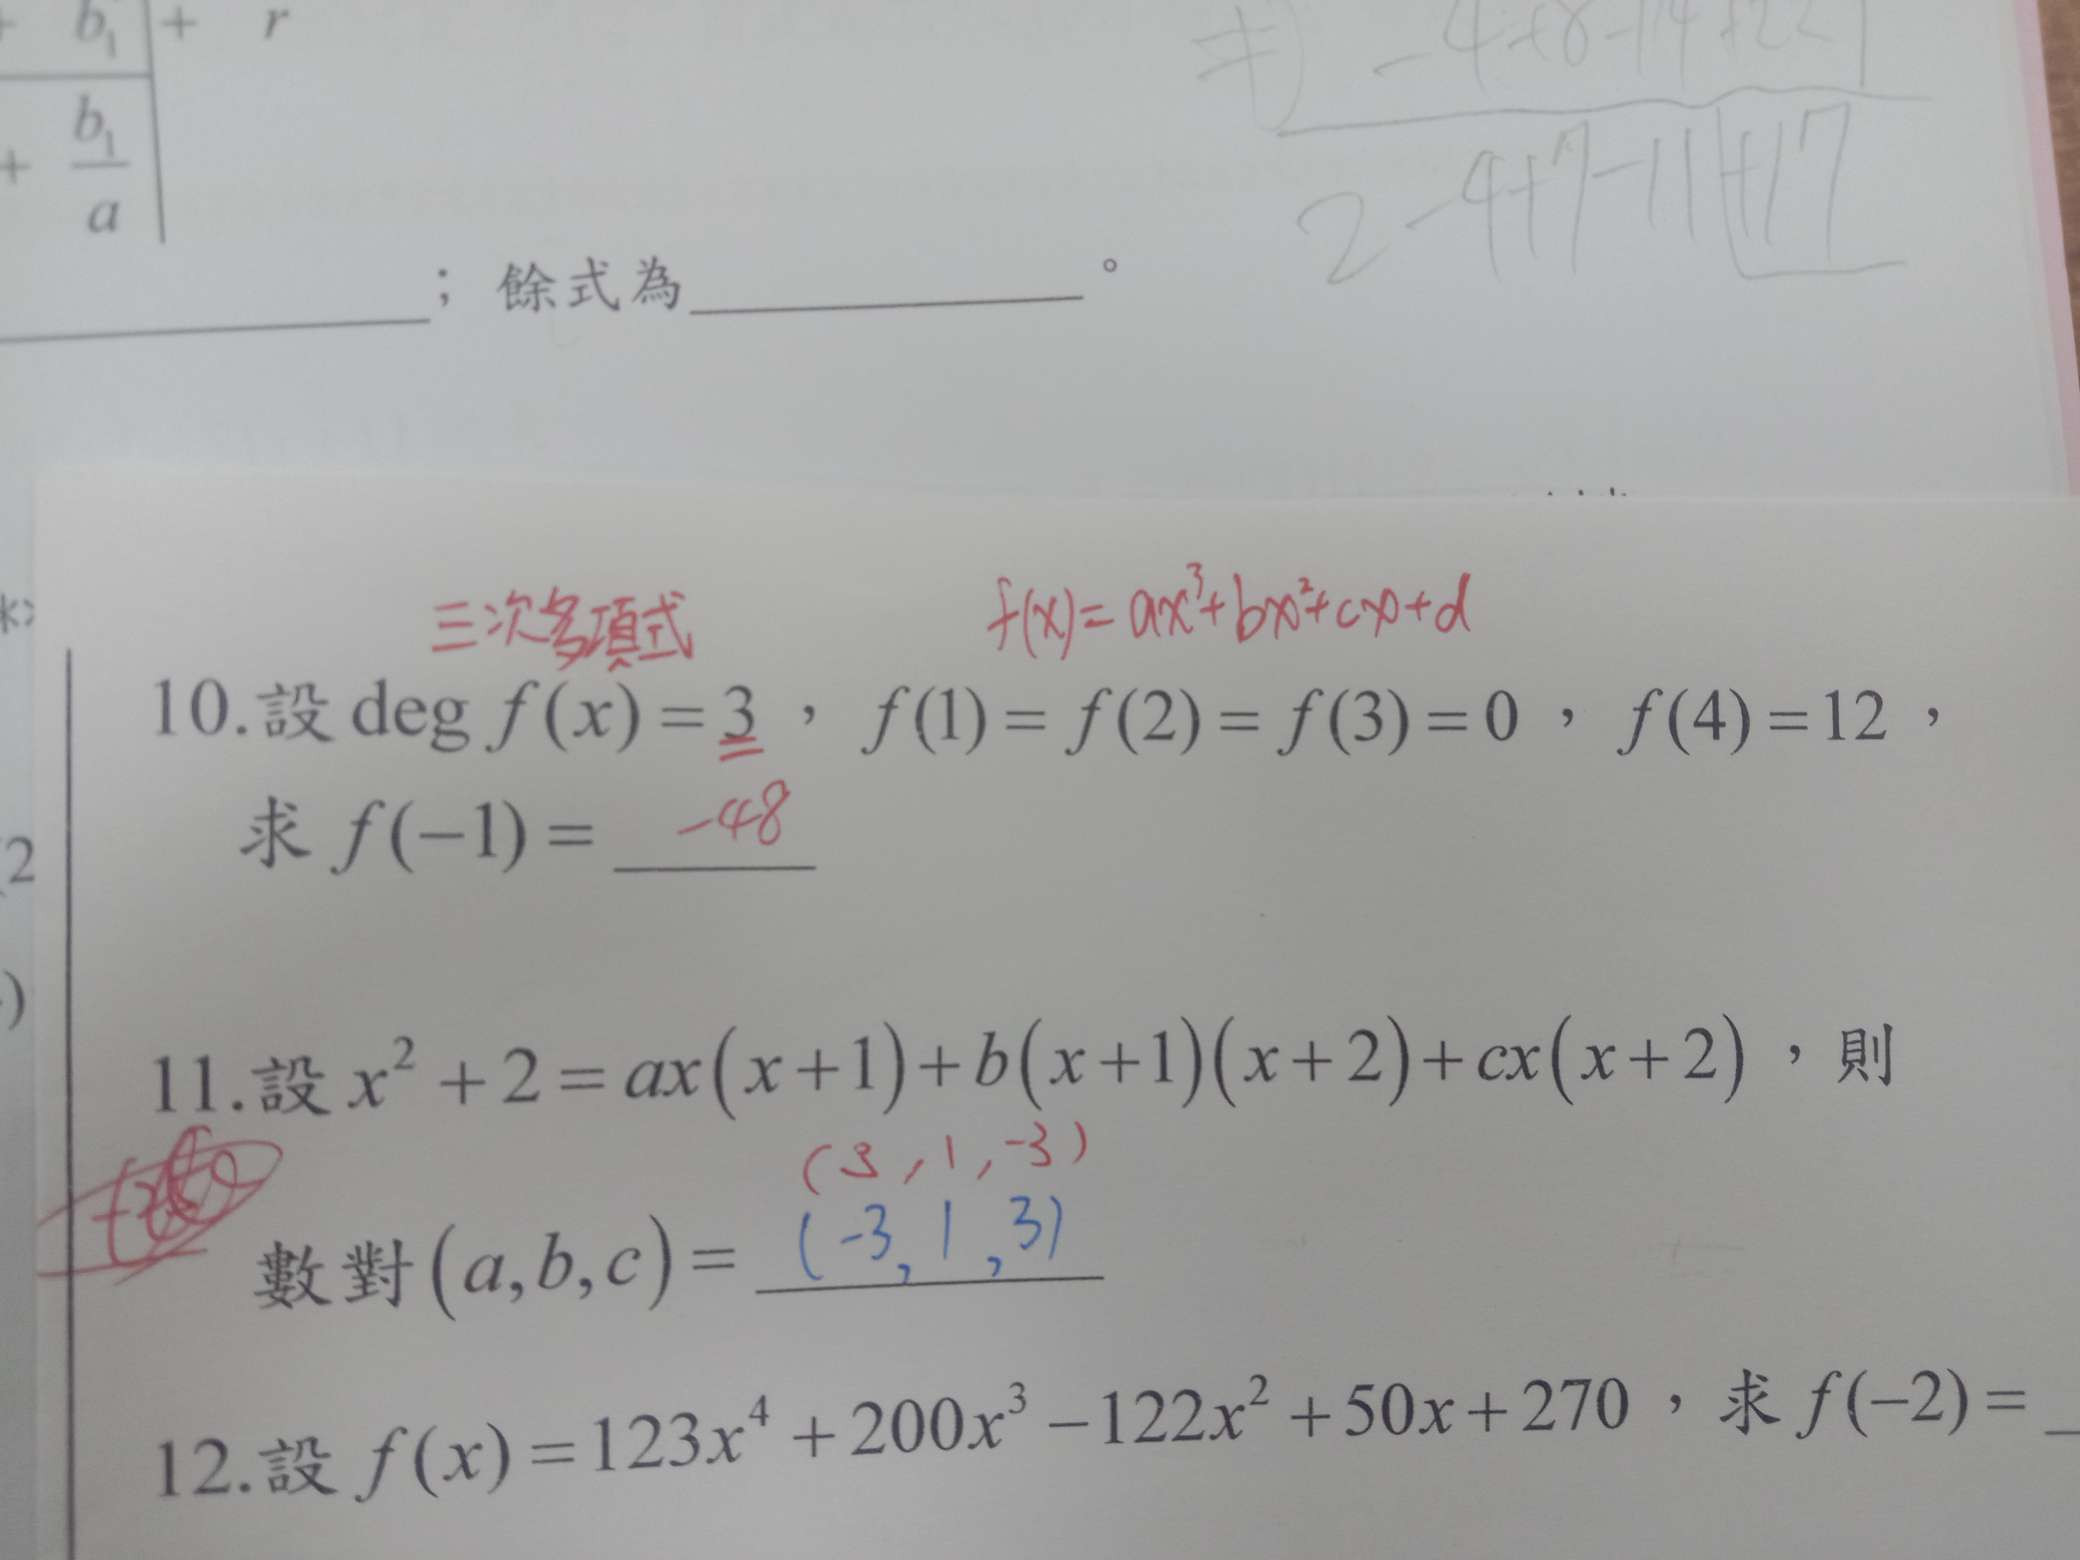 + b₁ + r
≠) -4+8-14+22
+ b₁/a
2-4+7-11+17
；餘式為________。
三次多項式 f(x)=ax³+bx²+cx+d
10.設 deg f(x)=3，f(1)=f(2)=f(3)=0，f(4)=12，
求 f(−1)= -48
(2
)
11.設 x²+2=ax(x+1)+b(x+1)(x+2)+cx(x+2)，則
(3,1,-3)
數對(a,b,c)= (-3,1,3)
12.設 f(x)=123x⁴+200x³−122x²+50x+270，求 f(−2)=